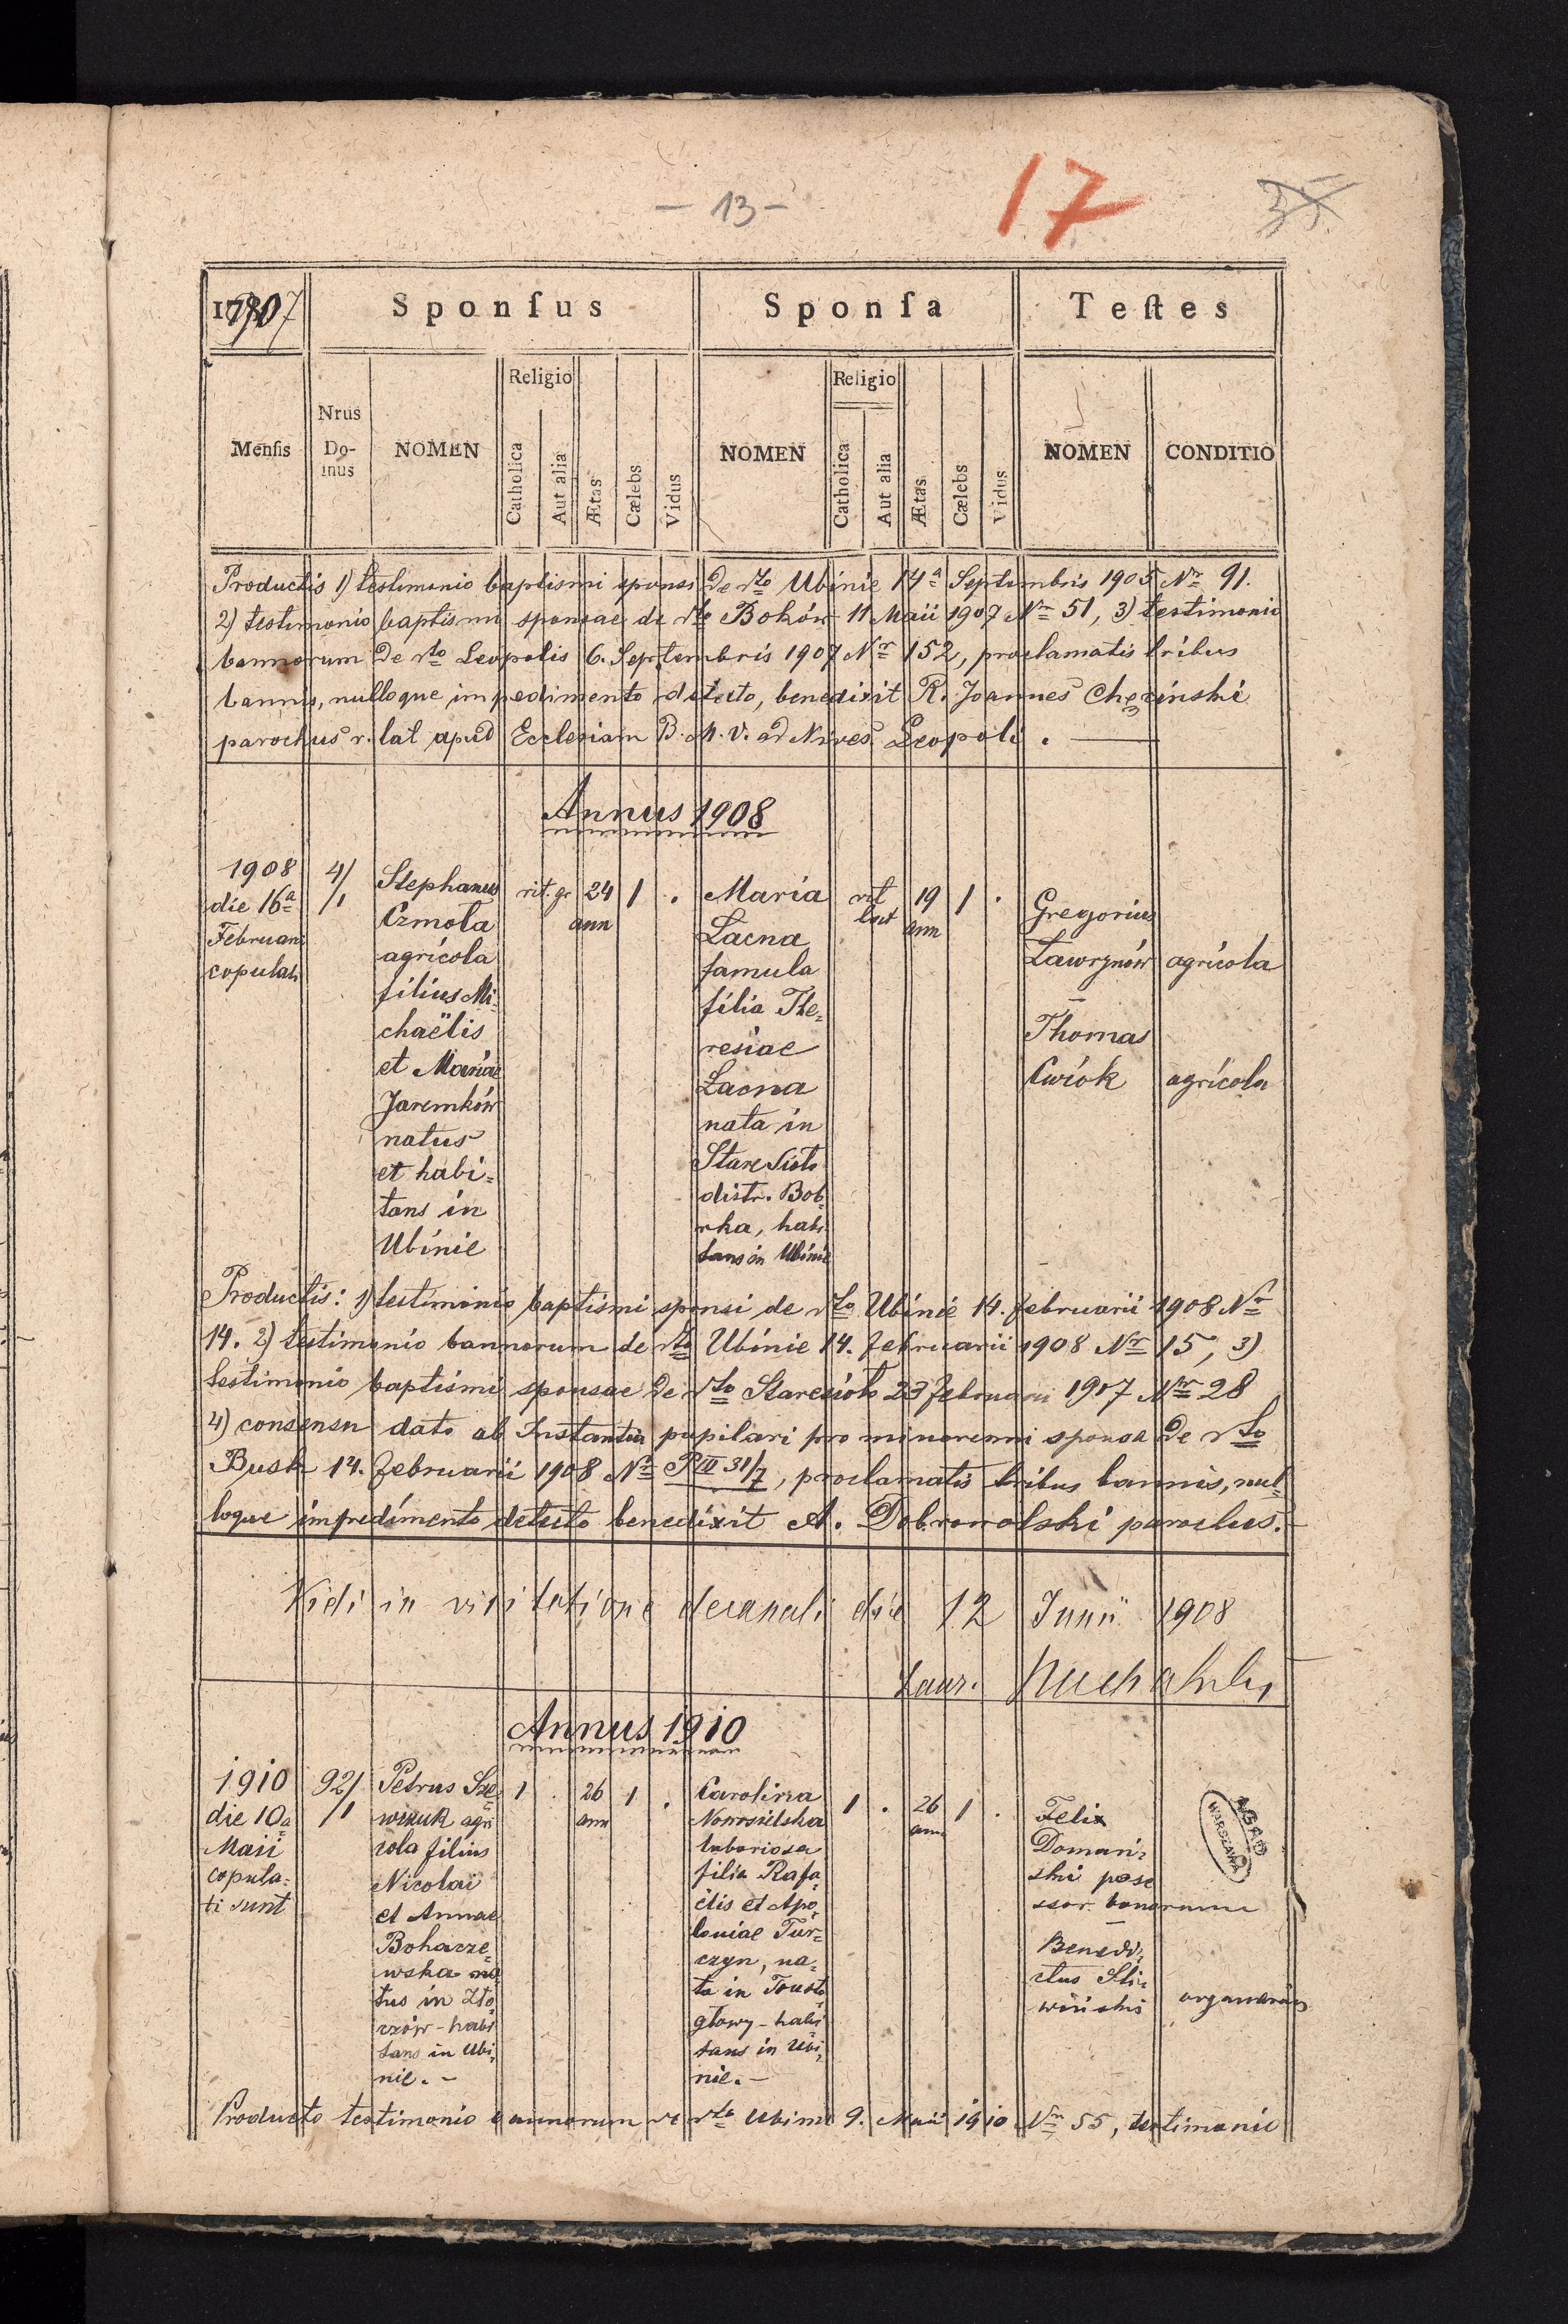 - 13 -
17
35
1907
Sponſus
Sponſa
Teſtes
Menſis
Nrus Do-mus
NOMEN
Religio
Catholica
Aut alia
Ætas
Cælebs
Vidus
NOMEN
Religio
Catholica
Aut alia
Ætas
Cælebs
Vidus
NOMEN
CONDITIO
Productis 1) testimonio baptismi sponsi de dto Ubinie 14a Septembris 1905 Nr 91.
2) testimonio baptismi sponsae de dto 11 Maii 1907 Nr 51, 3) testimonio
bannorum de dto Leopolis 6. Septembris 1907 Nr 152, proclamatis tribus
bannis, nulloque impedimento detecto, benedixit R. Joannes
parochus r. lat apud Ecclesiam B. M. V. ad Nives Leopoli.
Annus 1908
1908
die 16a
Februarii
copulati
4/
/1
Stephanus
Czmola
agricola
filius Mi-
chaëlis
et Mariae
Jaremków
natus
et habi=
tans in
Ubinie
rit. gr
24
ann
1
.
Maria
Łacna
famula
filia The=
resiae
Łacna
nata in
Stare Sioło
distr. Bob
rka, habi
tans in Ubinie
rit
lat
19
ann
1
.
Gregorius
Ławrynów agricola
Thomas
Cwiok agricola
Productis: 1) testimonio baptismi sponsi de dto Ubinie 14. februarii 1908 Nr
14. 2) testimonio bannorum de dto Ubinie 14. februarii 1908 Nr 15, 3)
testimonio baptismi sponsae de dto Staresioło 23 februarii 1907 Nr 28
4) consensu dato ab Instantia pupilari pro minorenni sponsa de dto
Busk 14. februarii 1908 Nr P III 31/7, proclamatis tribus bannis, nul=
loque impedimento detecto benedixit A. Dobrowolski parochus.
Vidi in visitatione decanali die 12 Junii 1908
Laur.
Annus 1910
1910
die 10a
Maii
copula=
ti sunt
92/
/1
Petrus Sze
wczuk agri
cola filius
Nicolai
et Annae
Bohacze=
wska na
tus in Zło
czów - habi
tans in Ubi=
nie. -
1
.
26
ann
1
.
Carolina
Nowosielska
laboriosa
filia Rafa
ëlis et Apo=
loniae Tur=
czyn, na=
ta in Tousto
głowy - habi
tans in Ubi=
nie. -
1
.
26
ann
1
.
Felix
Domań=
ski posse
ssor bonorum
Benedi=
ctus Sli=
wiński organarius
AGAD
WARSZAWA
Producto testimonio bannorum de dto Ubinie 9. Maii 1910 Nr 55, testimonio